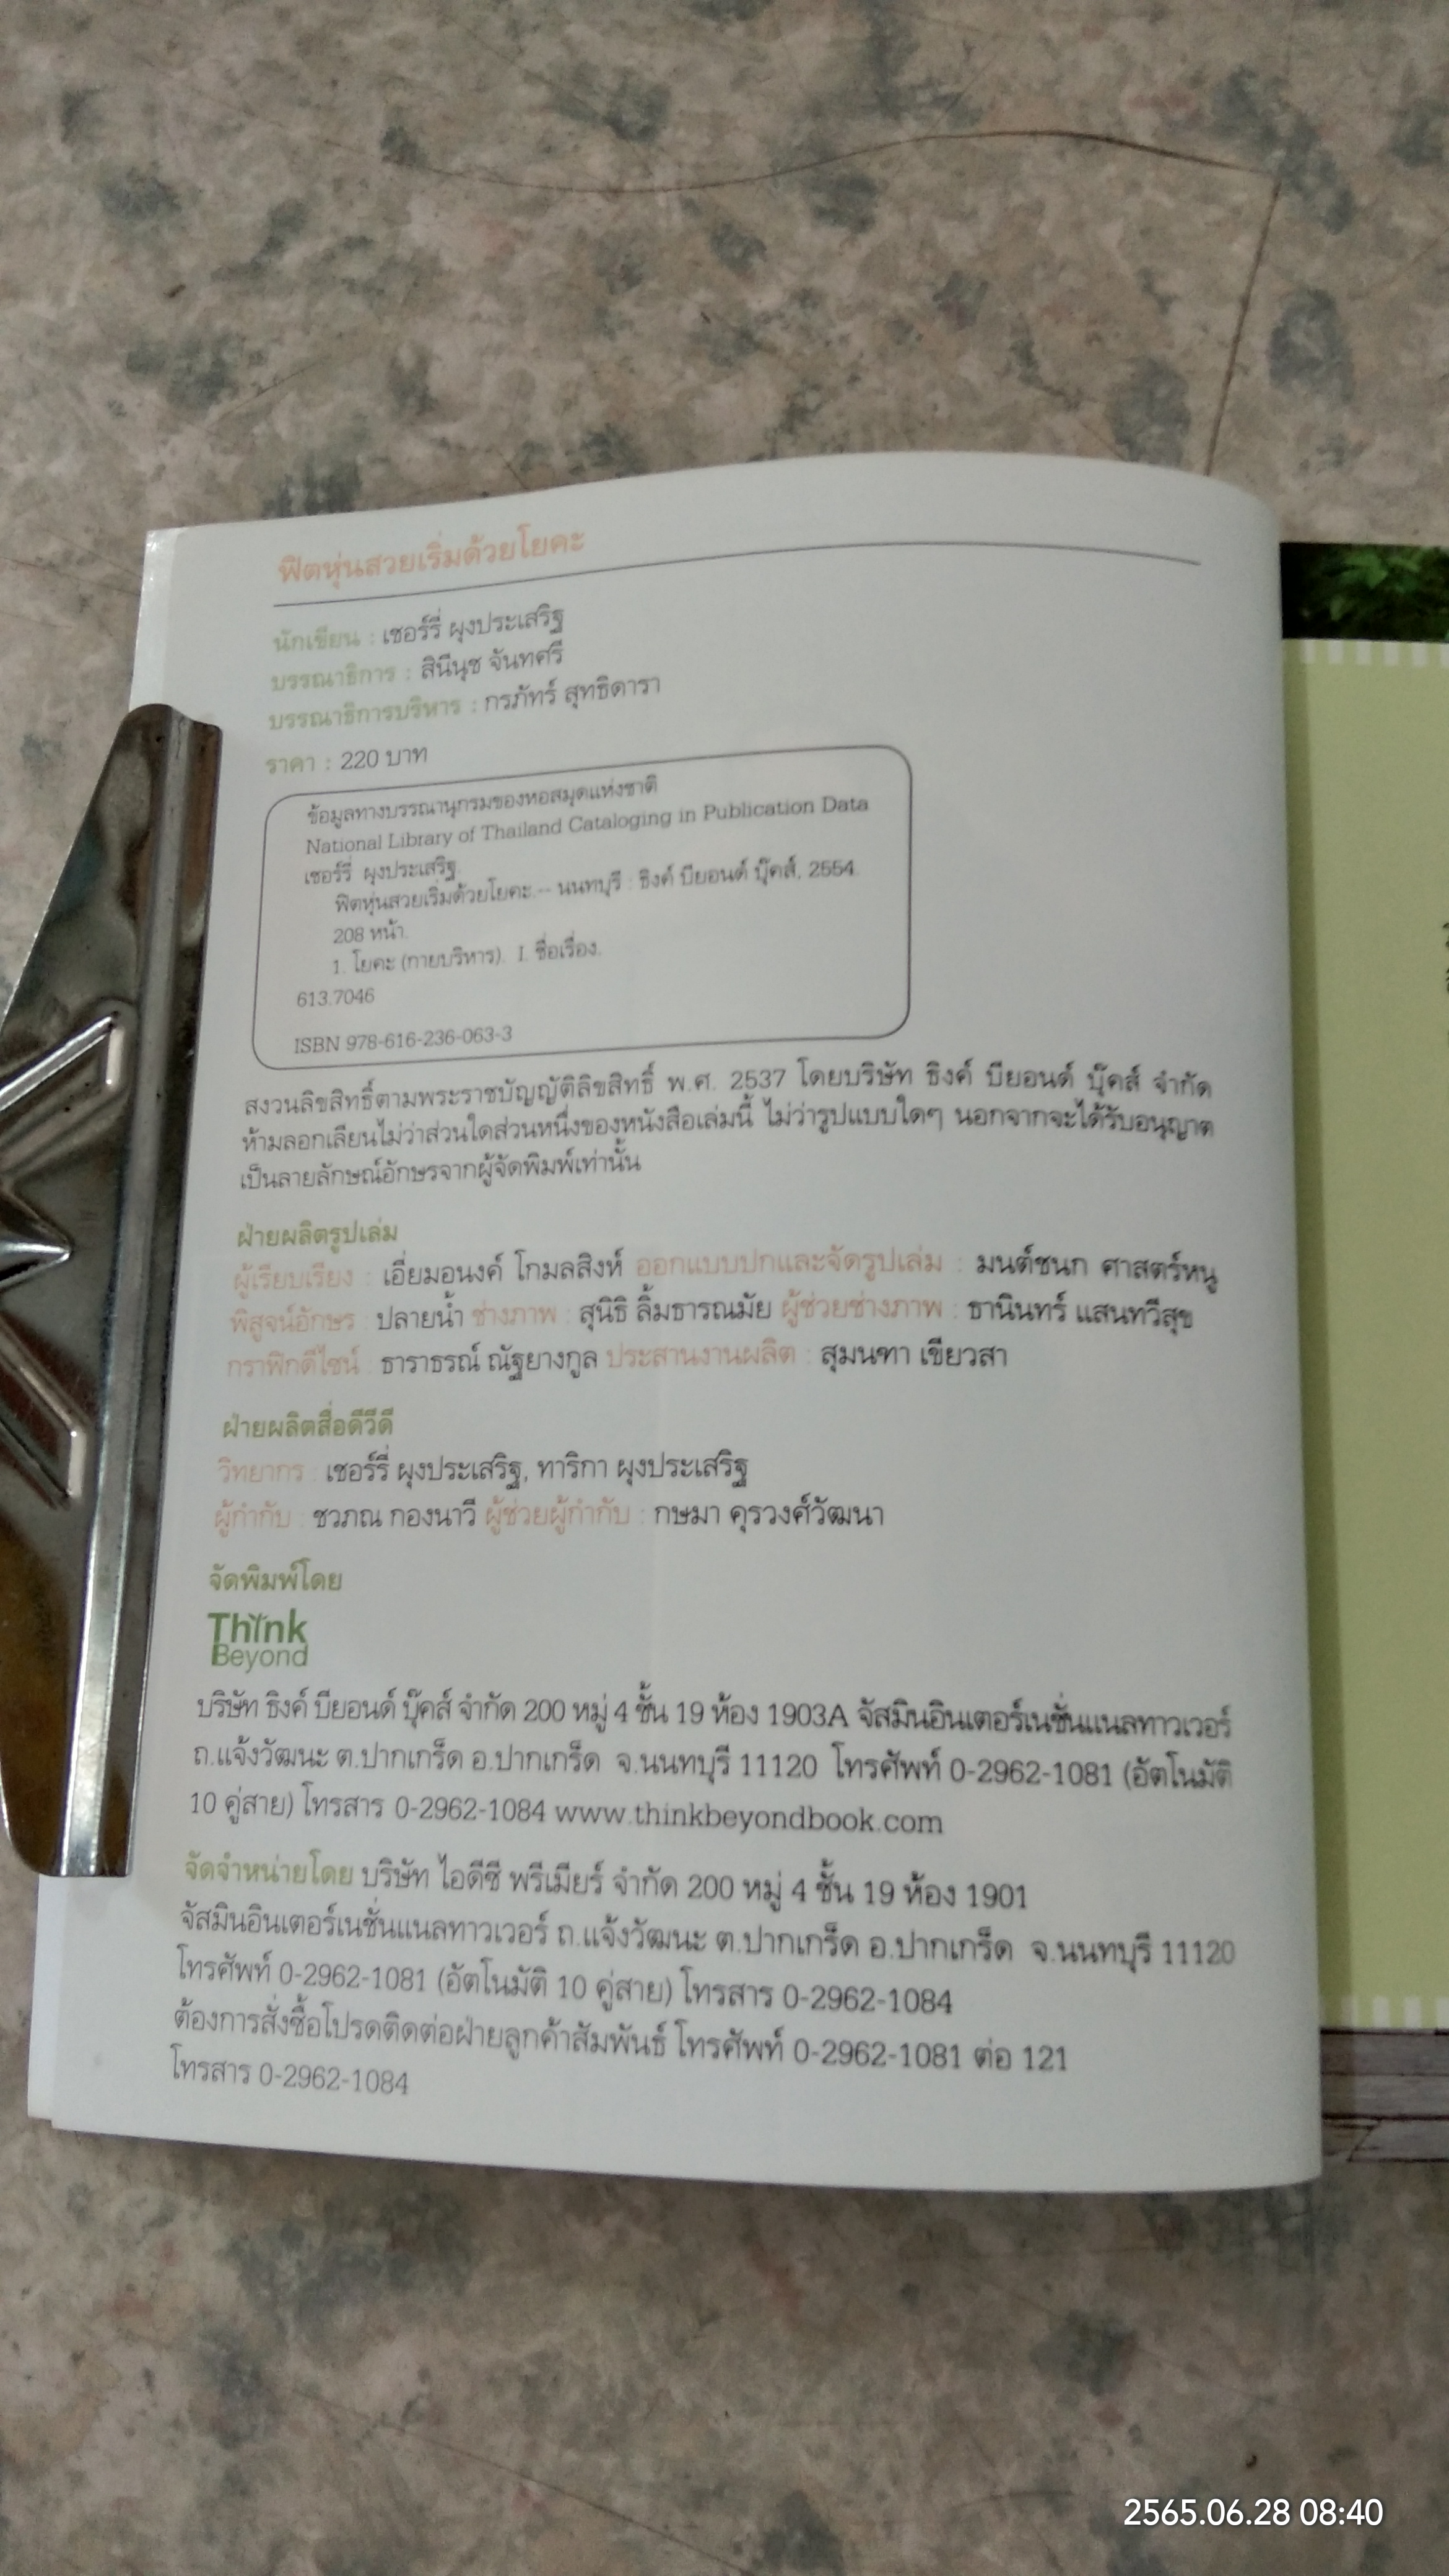 ฟิตหุ่นสวยเริ่มด้วยโยคะ
นักเขียน : เชอร์รี่ ผุงประเสริฐ
บรรณาธิการ : สินีนุช จันทศรี
บรรณาธิการบริหาร : กรภัทร์ สุทธิดารา
ราคา : 220 บาท
ข้อมูลทางบรรณานุกรมของหอสมุดแห่งชาติ
National Library of Thailand Cataloging in Publication Data
เชอร์รี่ ผุงประเสริฐ.
ฟิตหุ่นสวยเริ่มด้วยโยคะ.-- นนทบุรี : ธิงค์ บียอนด์ บุ๊คส์, 2554.
208 หน้า.
1. โยคะ (กายบริหาร). I. ชื่อเรื่อง.
613.7046
ISBN 978-616-236-063-3
สงวนลิขสิทธิ์ตามพระราชบัญญัติลิขสิทธิ์ พ.ศ. 2537 โดยบริษัท ธิงค์ บียอนด์ บุ๊คส์ จำกัด
ห้ามลอกเลียนไม่ว่าส่วนใดส่วนหนึ่งของหนังสือเล่มนี้ ไม่ว่ารูปแบบใดๆ นอกจากจะได้รับอนุญาต
เป็นลายลักษณ์อักษรจากผู้จัดพิมพ์เท่านั้น
ฝ่ายผลิตรูปเล่ม
ผู้เรียบเรียง : เอี่ยมอนงค์ โกมลสิงห์ ออกแบบปกและจัดรูปเล่ม : มนต์ชนก ศาสตร์หนู
พิสูจน์อักษร : ปลายน้ำ ช่างภาพ : สุนิธิ ลิ้มธารณมัย ผู้ช่วยช่างภาพ : ธานินทร์ แสนทวีสุข
กราฟิกดีไซน์ : ธาราธรณ์ ณัฐยางกูล ประสานงานผลิต : สุมนฑา เขียวสา
ฝ่ายผลิตสื่อดีวีดี
วิทยากร : เชอร์รี่ ผุงประเสริฐ, ทาริกา ผุงประเสริฐ
ผู้กำกับ : ชวภณ กองนาวี ผู้ช่วยผู้กำกับ : กษมา คุรวงศ์วัฒนา
จัดพิมพ์โดย
Think
Beyond
บริษัท ธิงค์ บียอนด์ บุ๊คส์ จำกัด 200 หมู่ 4 ชั้น 19 ห้อง 1903A จัสมินอินเตอร์เนชั่นแนลทาวเวอร์
ถ.แจ้งวัฒนะ ต.ปากเกร็ด อ.ปากเกร็ด จ.นนทบุรี 11120 โทรศัพท์ 0-2962-1081 (อัตโนมัติ
10 คู่สาย) โทรสาร 0-2962-1084 www.thinkbeyondbook.com
จัดจำหน่ายโดย บริษัท ไอดีซี พรีเมียร์ จำกัด 200 หมู่ 4 ชั้น 19 ห้อง 1901
จัสมินอินเตอร์เนชั่นแนลทาวเวอร์ ถ.แจ้งวัฒนะ ต.ปากเกร็ด อ.ปากเกร็ด จ.นนทบุรี 11120
โทรศัพท์ 0-2962-1081 (อัตโนมัติ 10 คู่สาย) โทรสาร 0-2962-1084
ต้องการสั่งซื้อโปรดติดต่อฝ่ายลูกค้าสัมพันธ์ โทรศัพท์ 0-2962-1081 ต่อ 121
โทรสาร 0-2962-1084
2565.06.28 08:40